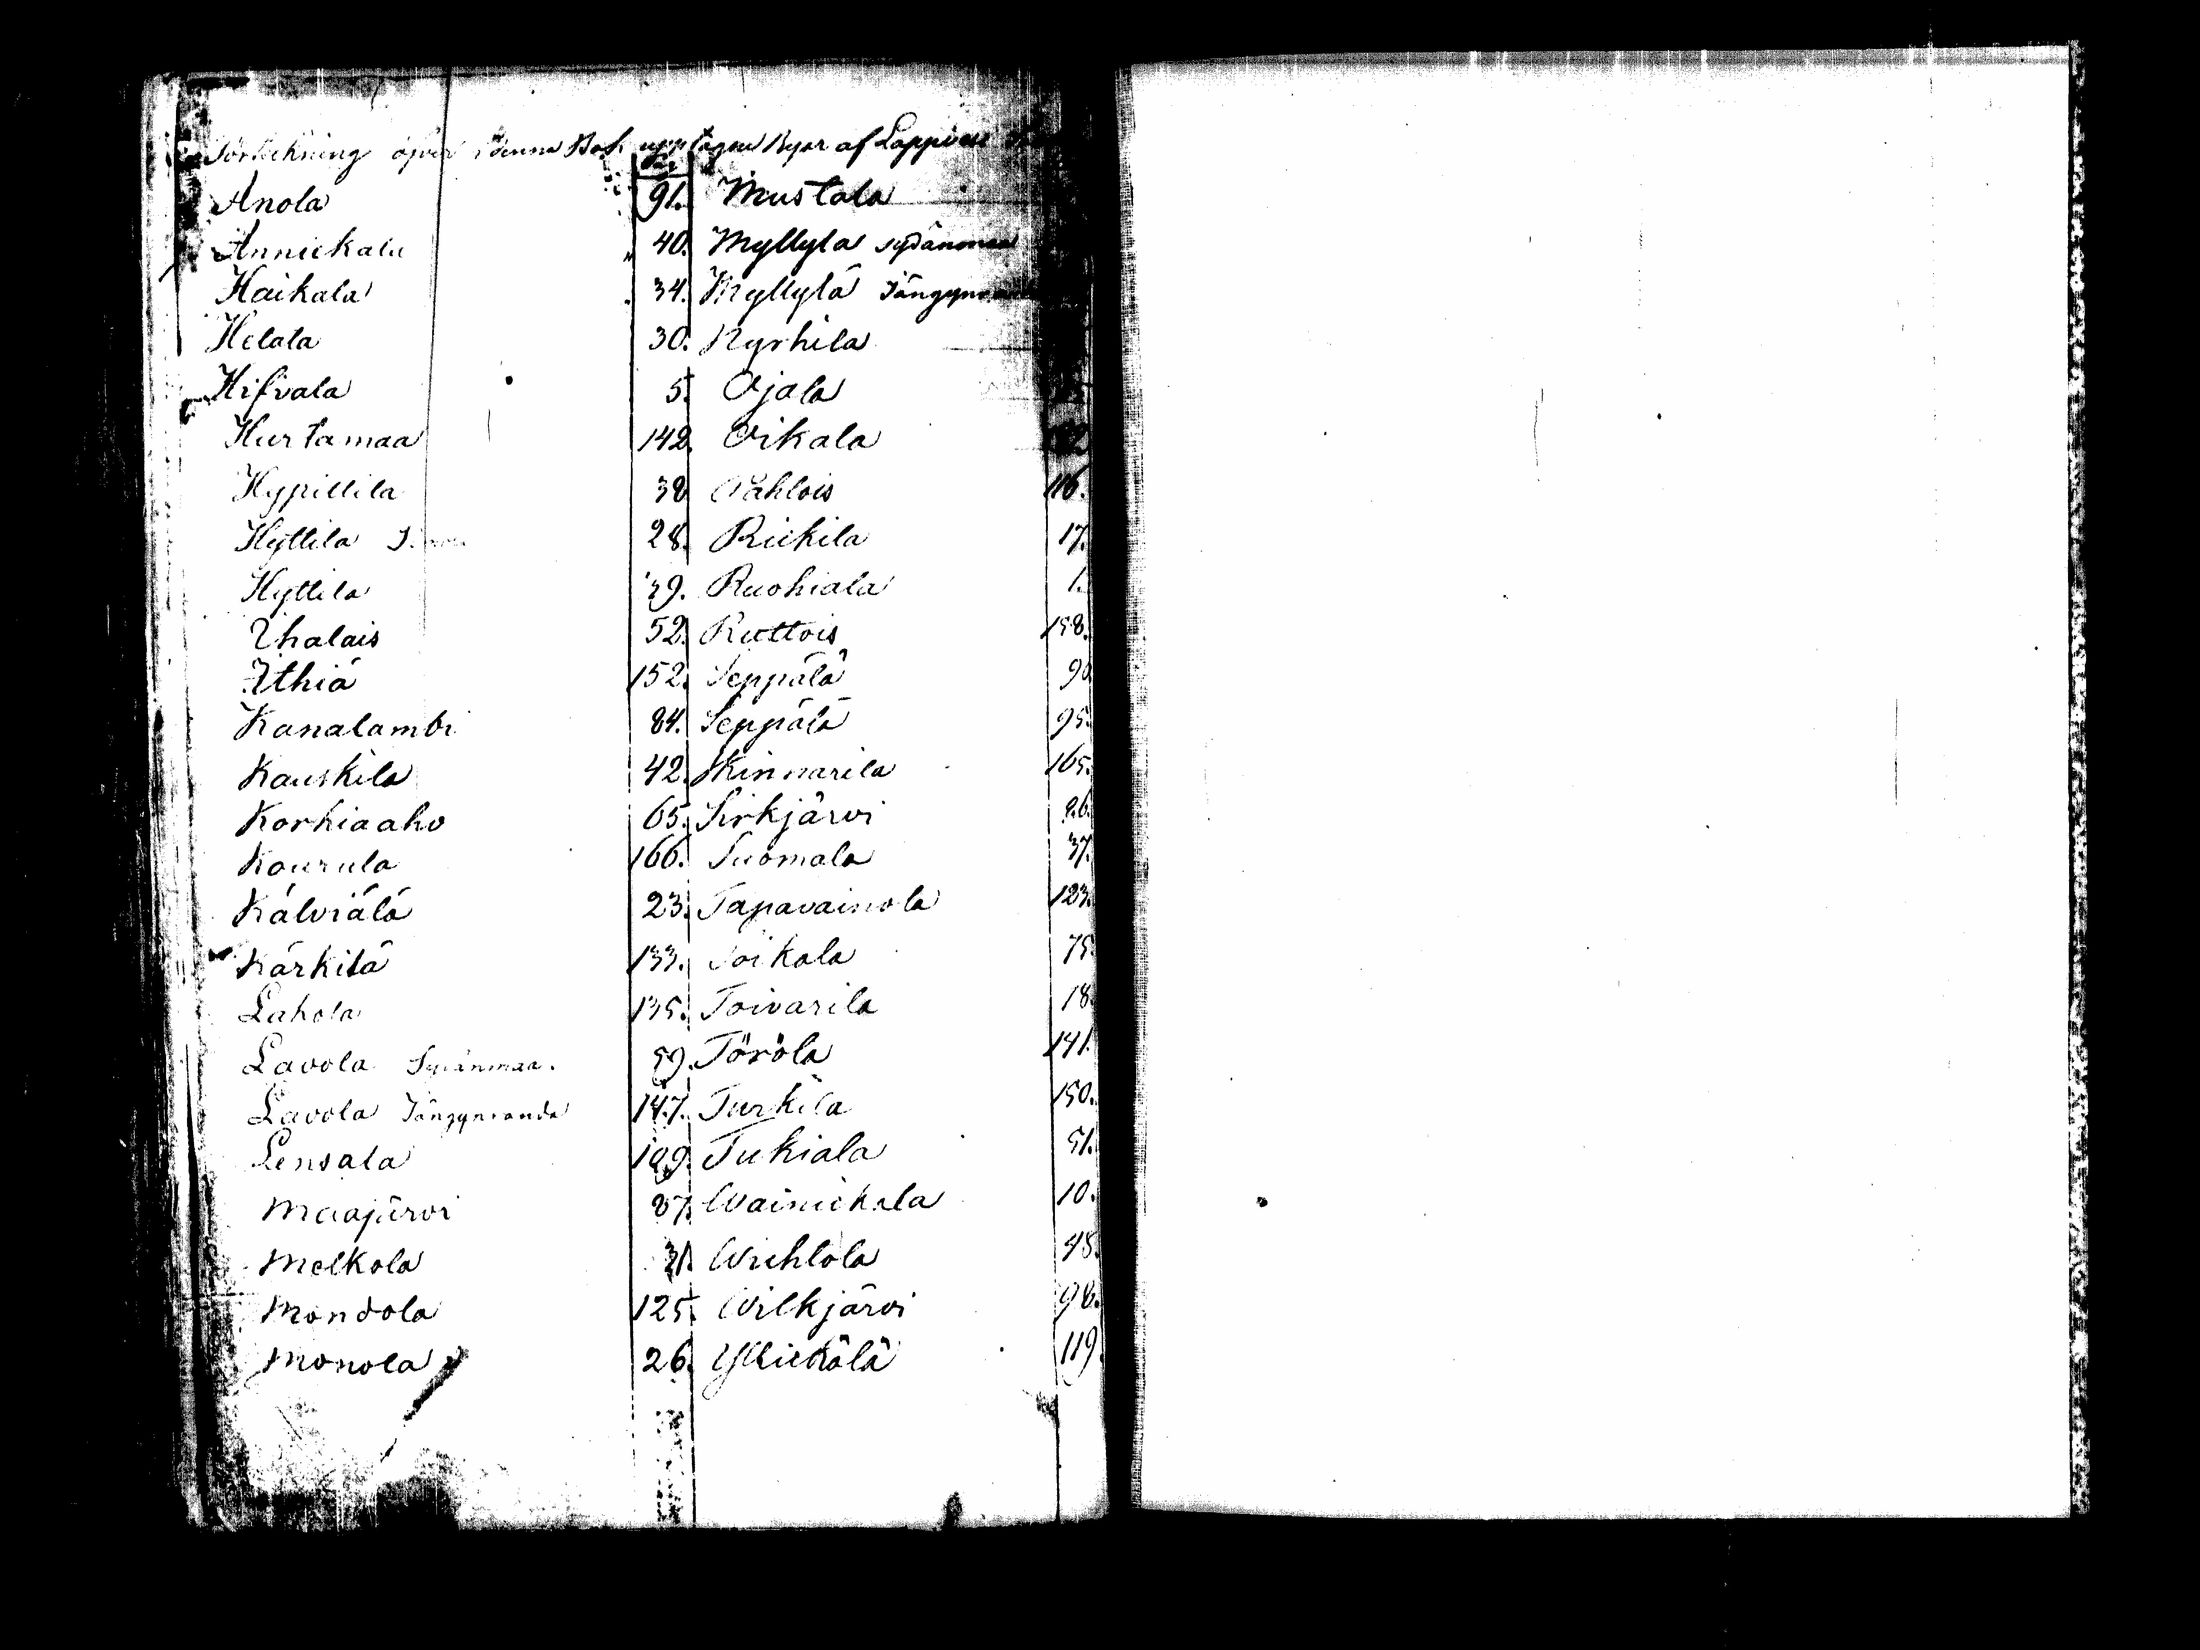 Förteckning öfver i denna Bok upptagne Byar af Lappvesi
Pag
Anola 91. Mustala
Annickala 40. Myllylä sydänmaa
Haikala 34. Myllylä Jängynranda
Helala 30. Nyrhilä
Hifvala 5. Ojala
Hurtamaa 142. Oikala
Hypillilä 38 Pahlois 116.
Hyttilä 28. Rickilä 17.
Hyttilä 39. Ruohiala 1.
Ihalais 52. Ruttois 158.
Ithiä 152. Seppälä 90
Kanalambi 84. Seppälä 95.
Kauskila 42. Skinnarila 165.
Korkiaaho 65. Sirkjärvi 26.
Kourula 166. Suomala 37.
Kälviälä 23. Tapavainola 123.
Kärkilä 133. Toikala 75.
Lahola 135. Toivarila 18.
Lavola Sydänmaa. 59. Törölä 141.
Lavola Jängynranda 147. Turkila 150.
Lensula 109. Tukiala 51.
Maajärvi 87. Wainickala 10.
Melkola 31. Wiehlola 48.
Mondola 125. Wilkjärvi 98.
Monola 26. Yllickälä 119.